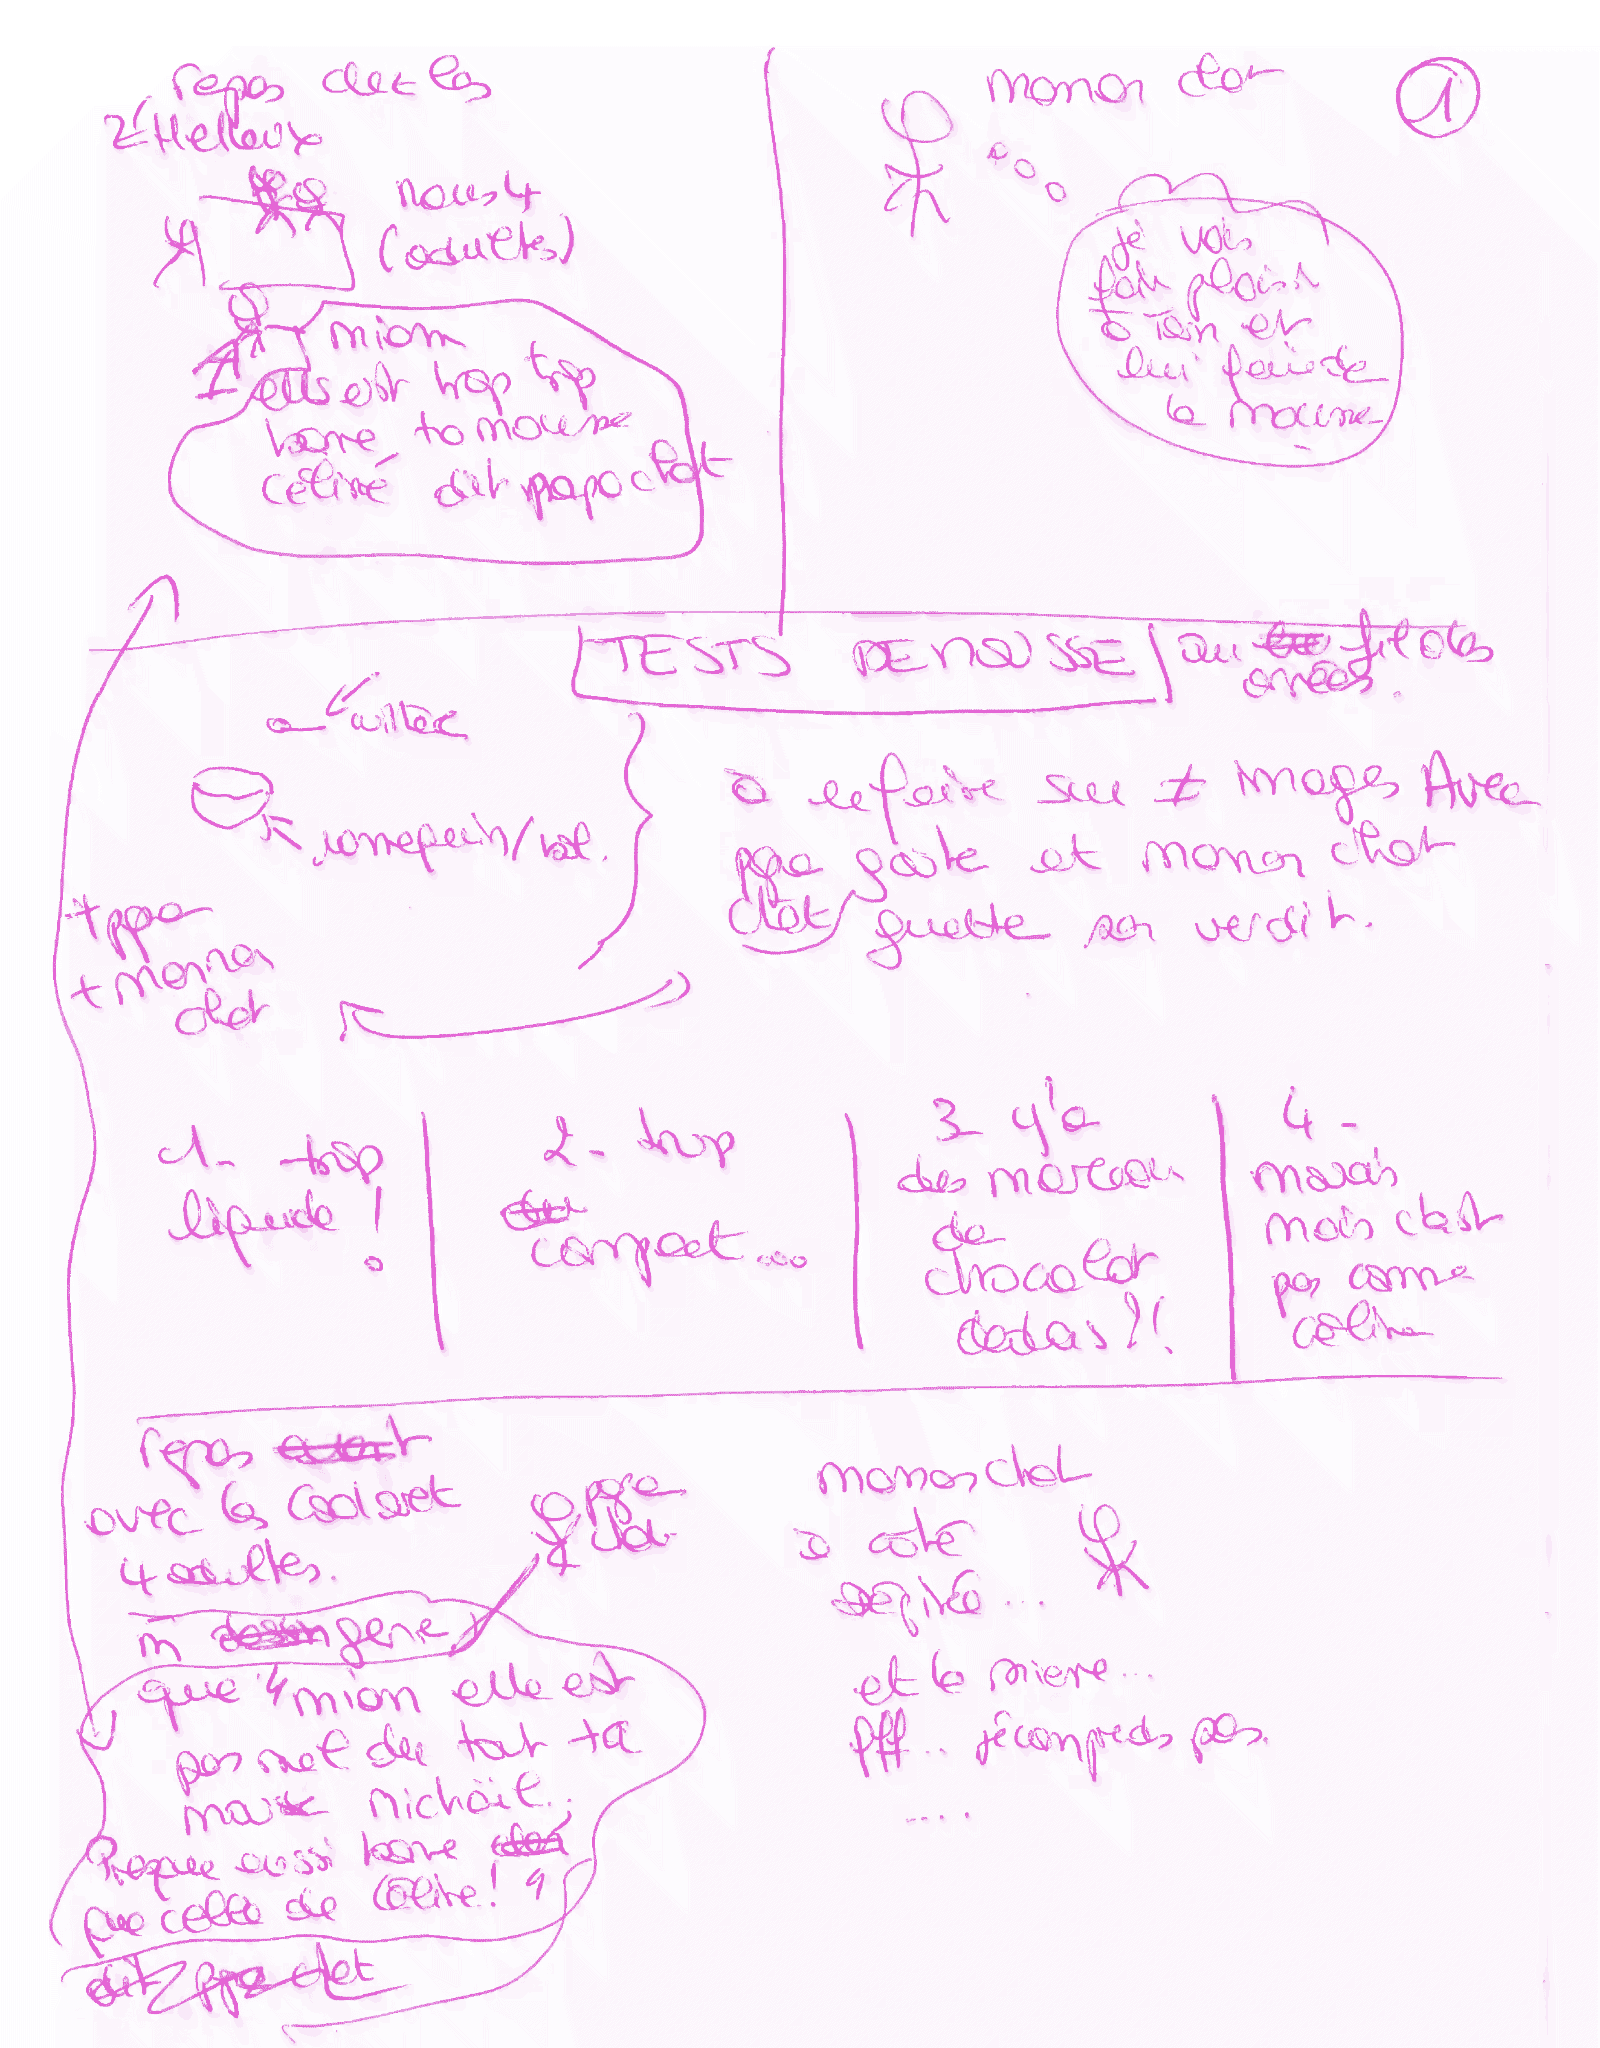 repas chez les
Helleux
nous 4
(adultes)
miam
elle est trop trop
bonne ta mousse
céline dit papa chat
maman chat
1
je vais
faire plaisir
à Tom et
lui faire
la mousse
TESTS DE MOUSSE au fil des
années.
cuillère
ramequin/bol.
+ papa
+ maman
chat
à refaire sur ≠ images Avec
papa goûte et maman chat
chat guette son verdict.
1- trop
liquide !
2- trop
compact...
3 y'a
des morceau
de
chocolat
dedans ?!
4 -
mouais
mais c'est
pas comme
céline
repas
avec les
4 adultes.
papa
chat
m gène
que "miam elle est
pas mal du tout ta
mousse michaël..
Presque aussi bonne
que celle de Céline! "
dit papa chat
maman chat
à côté
dépitée...
et la mienne...
Pff... je comprends pas.
....